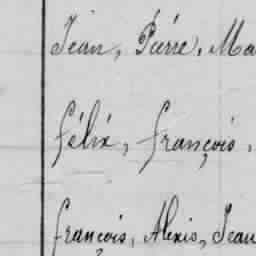 Jean, Pierre, Ma
Félix, François,
François, Alexis, Jean